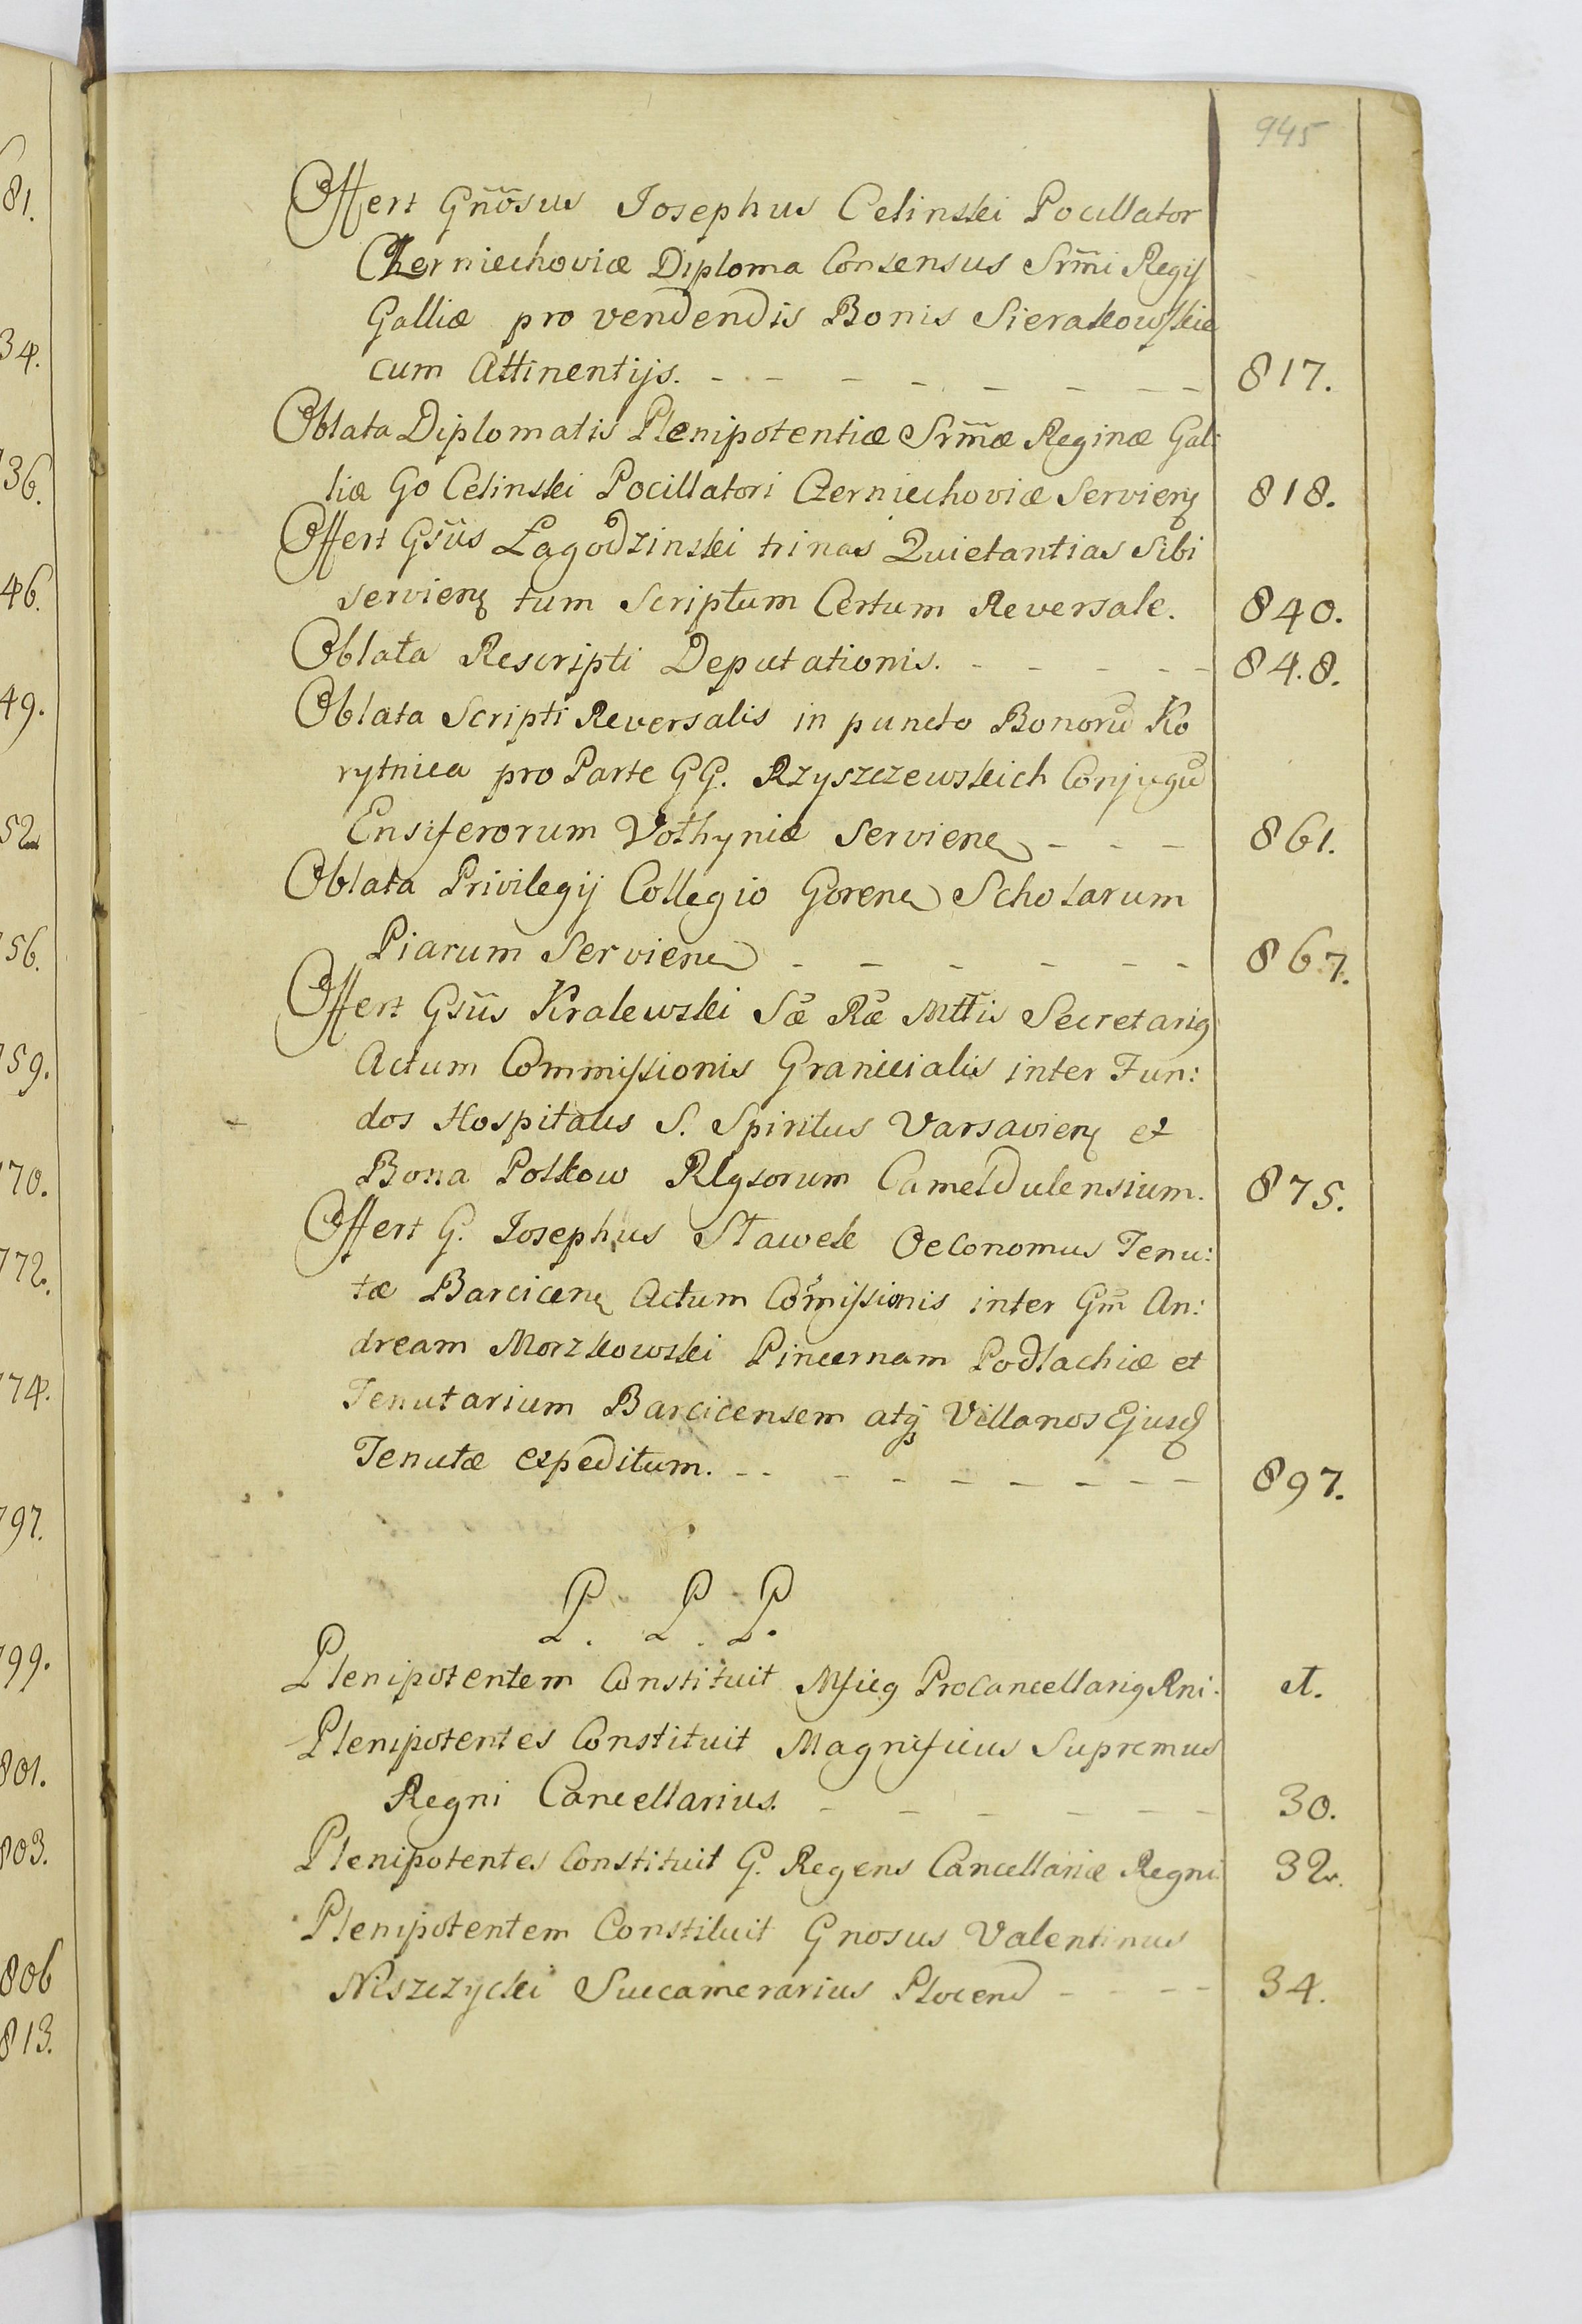 945
Offert Gñosus Josephus Celinski Pocillator
Czerniechoviæ Diploma Consensus Srm̃i Regis
Galliæ pro vendendis Bonis Sierakowskie
cum Attinentijs. - - - - - - - - 817.
Oblata Diplomatis Plenipotentiæ Srm̃æ Reginæ Gal:
liæ Go Celinski Pocillatori Czerniechoviæ Servienꝭ 818.
Offert Gsũs Łagodzinski trinas Quietantias Sibi
servienꝭ tum Scriptum Certum Reversale. 840.
Oblata Rescripti Deputationis. - - - - - 848.
Oblata Scripti Reversalis in puncto Bonorũ Ko
rytnica pro Parte GG. Rzyszczewskich Conjugũ
Ensiferorum Volhyniæ Servienꝭ - - - 861.
Oblata Privilegij Collegio Gorenꝭ Scholarum
Piarum Servienꝭ - - - - - - 867.
Offert Gsũs Kralewski Sæ Ræ Mttis Secretariꝯ
Actum Commissionis Granicialis inter Fun:
dos Hospitalis S. Spiritus Varsavienꝭ et
Bona Polkow Rlgsorum Cameldulensium. 875.
Offert G. Josephus Stawek Oeconomus Tenu:
tæ Barcicenꝭ Actum Com̃issionis inter Gm̃ An:
dream Morzkowski Pincernam Podlachiæ et
Tenutarium Barcicensem atqꝫ Villanos Ejusd
Tenutæ expeditum. - - - - - - - - - 897.
P. P. P.
Plenipotentem Constituit Mficꝯ Procancellariꝯ Rni: et.
Plenipotentes Constituit Magnificus Supremus
Regni Cancellarius. - - - - - - 30.
Plenipotentes Constituit G. Regens Cancellariæ Regni. 32.
Plenipotentem Constituit Gnosus Valentinus
Niszczycki Succamerarius Plocenꝭ - - - - 34.
81.
34.
36.
46.
49.
52
56.
59.
70.
772.
74.
797.
799.
801.
803.
806
813.